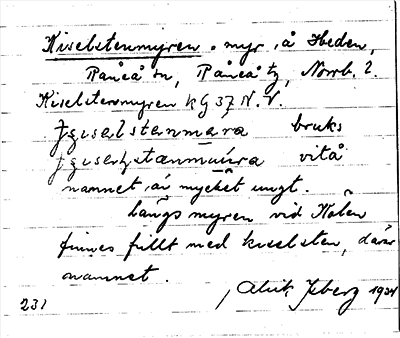 Kiselstenmyren, myr å Heden,
Råneå sn, Råneå tg, Norrb. l.
Kiselstensmyren kG 37 N.V.
bruks
vitå
namnet är mycket ungt.
Längs myren vid Kölen
finnes fullt med kiselsten, därav
namnet.
Alrik Isberg 1934
231